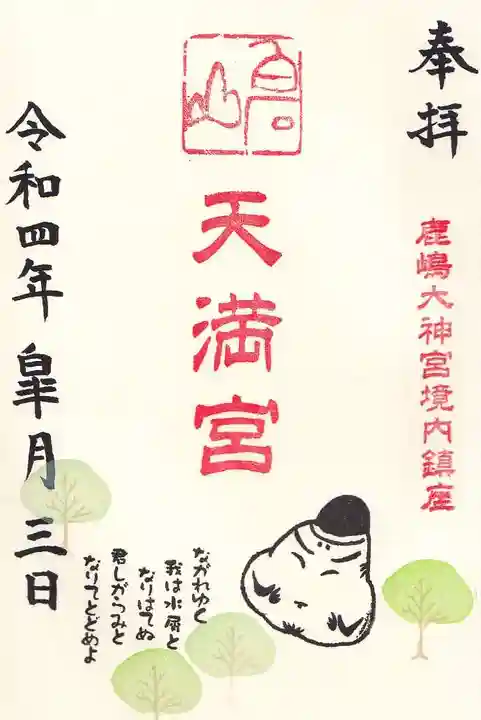 奉拝
鹿嶋大神宮境内鎮座
天満宮
ながれゆく
我は水屑と
なりはてぬ
君しがらみと
なりてとどめよ
令和四年皐月三日